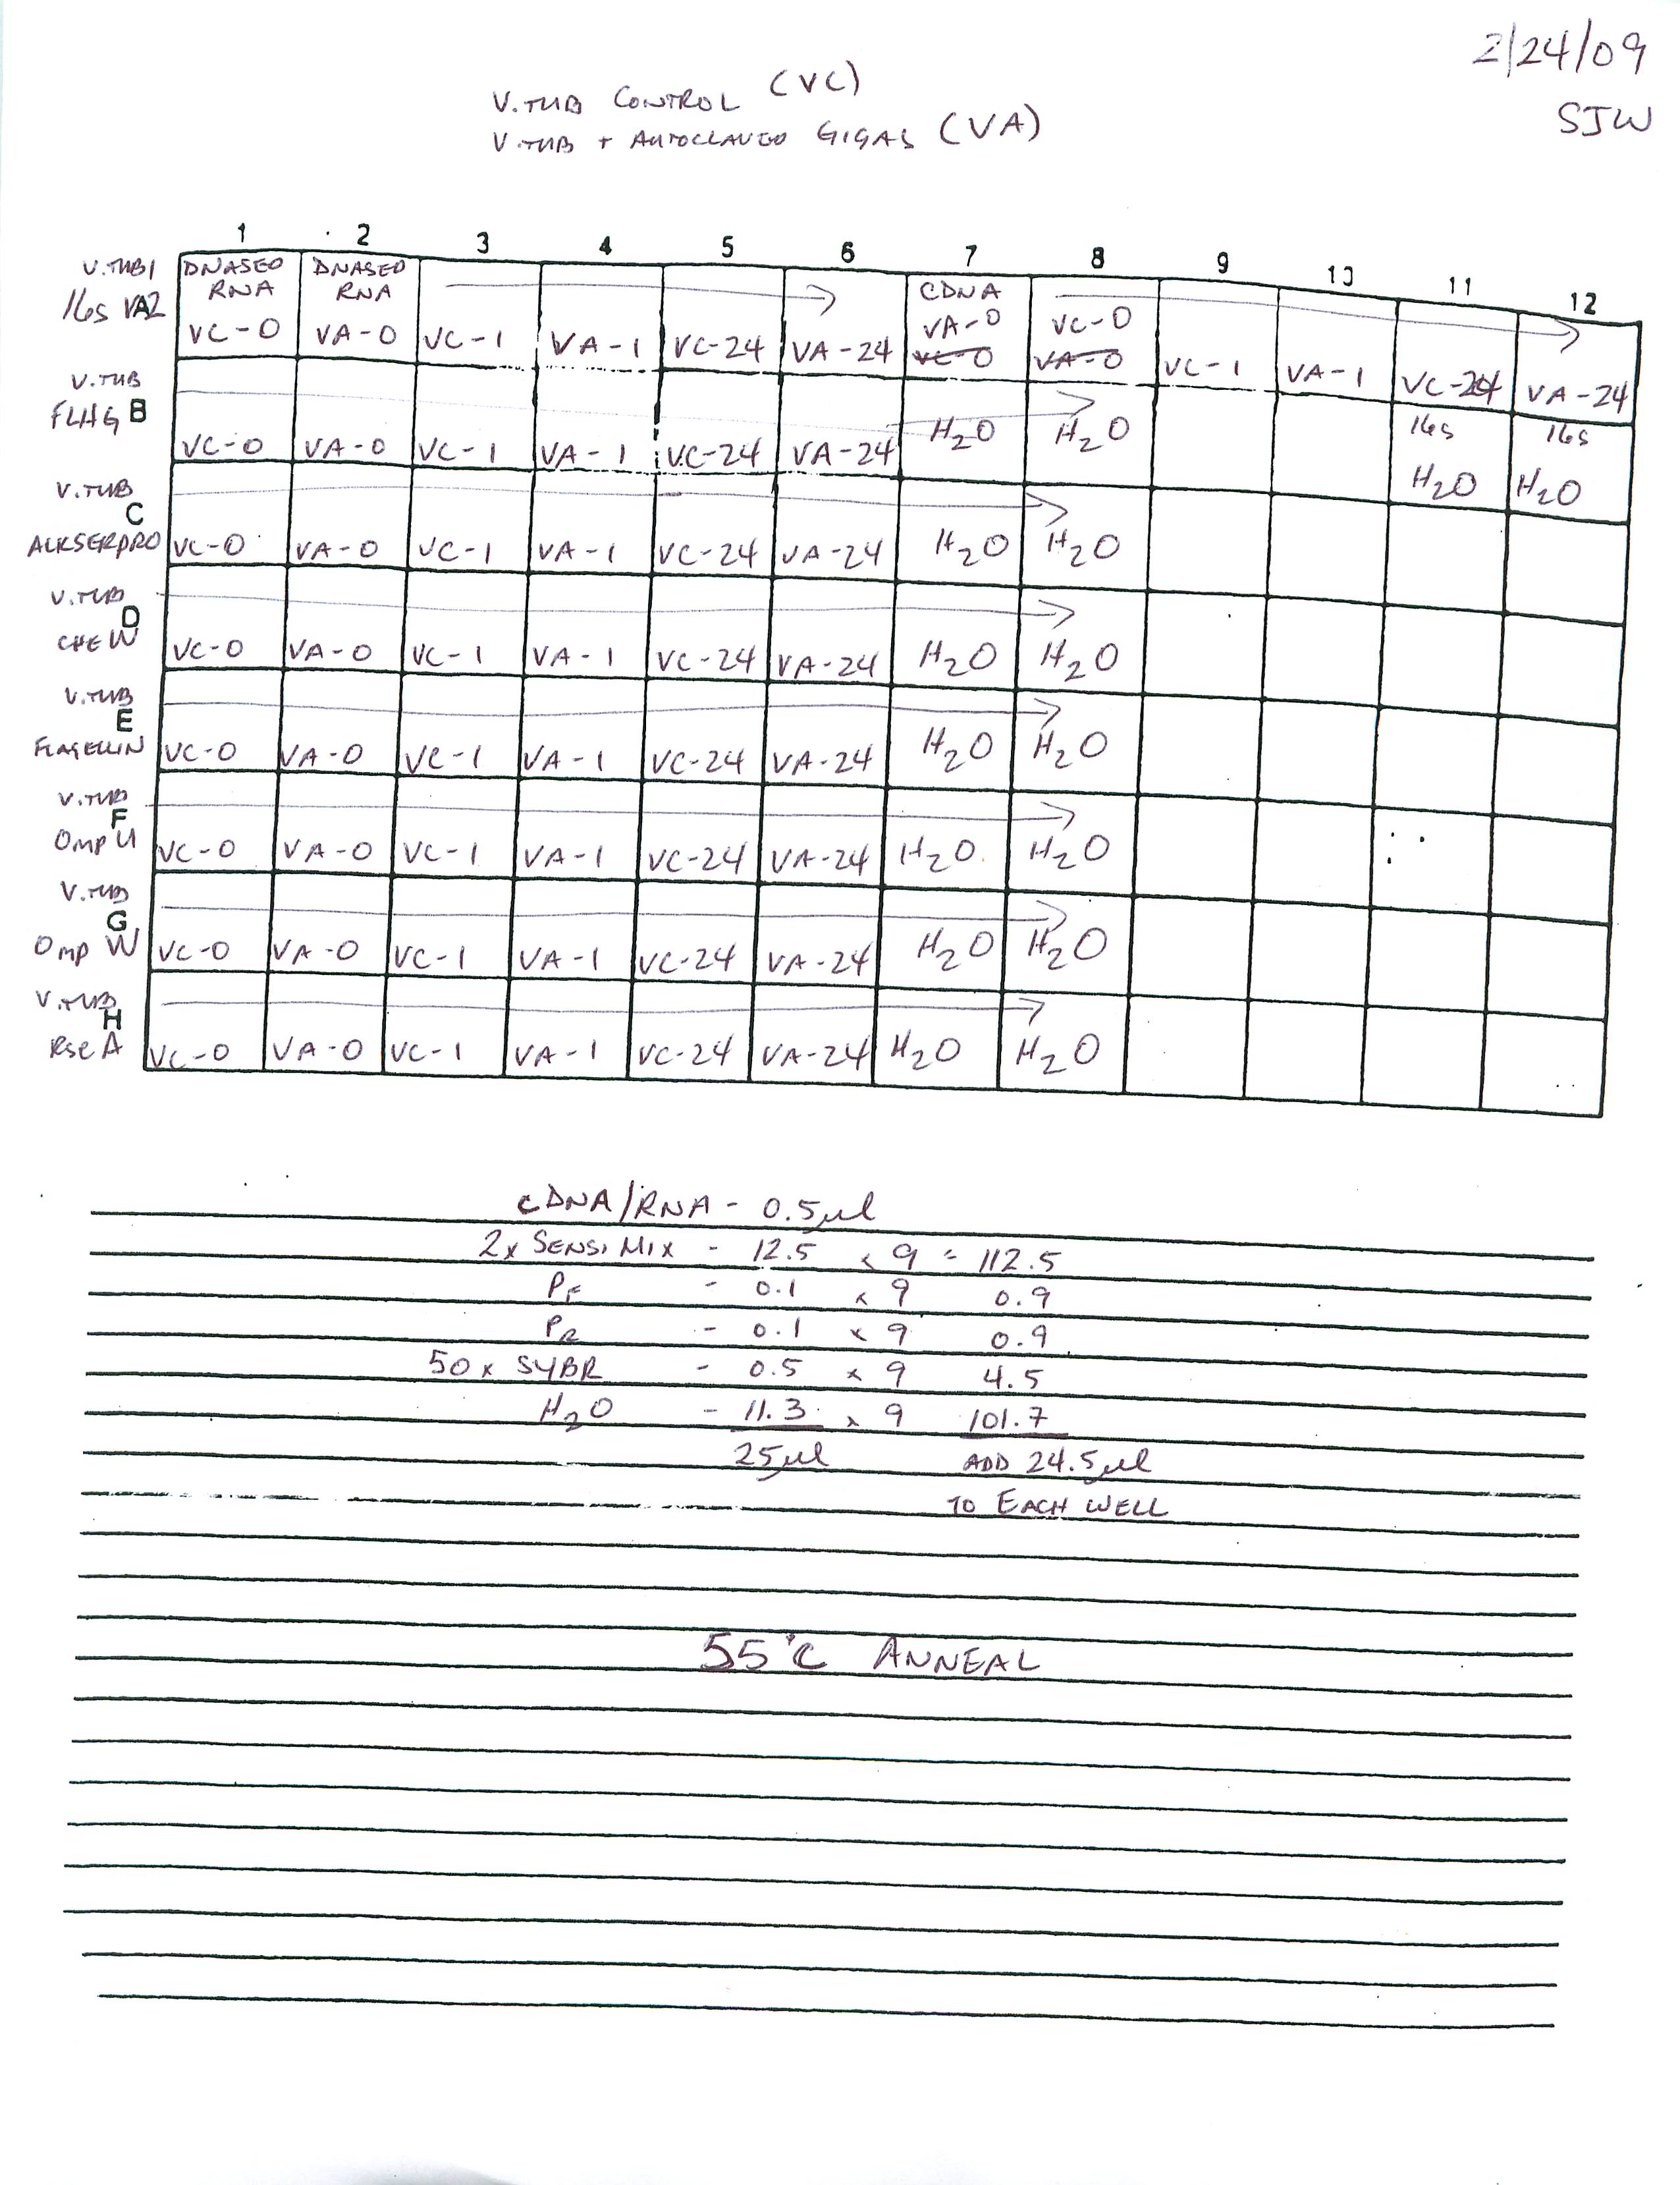 2/24/09
SJW
V.TUB CONTROL (VC)
V.TUB + AUTOCLAVED GIGAS (VA)
1 2 3 4 5 6 7 8 9 10 11 12
V.TUB/ 16s VA2 A
DNASED RNA VC-0 DNASED RNA VA-0 VC-1 VA-1 VC-24 VA-24 CDNA VA-0 VC-0 VC-0 VA-0 VC-1 VA-1 VC-24 VA-24
V.TUB
FLHG B VC-0 VA-0 VC-1 VA-1 VC-24 VA-24 H2O H2O 16s H2O 16s H2O
V.TUB
C
ALKSERPRO VC-0 VA-0 VC-1 VA-1 VC-24 VA-24 H2O H2O
V.TUB
D
CHEW VC-0 VA-0 VC-1 VA-1 VC-24 VA-24 H2O H2O
V.TUB
E
FLAGELLIN VC-0 VA-0 VC-1 VA-1 VC-24 VA-24 H2O H2O
V.TUB
F
OmpU VC-0 VA-0 VC-1 VA-1 VC-24 VA-24 H2O H2O
V.TUB
G
Omp W VC-0 VA-0 VC-1 VA-1 VC-24 VA-24 H2O H2O
V.TUB
H
RseA VC-0 VA-0 VC-1 VA-1 VC-24 VA-24 H2O H2O
cDNA/RNA - 0.5µl
2x SENSI MIX - 12.5 x 9 = 112.5
PF - 0.1 x 9 0.9
PR - 0.1 x 9 0.9
50x SYBR - 0.5 x 9 4.5
H2O - 11.3 x 9 101.7
25µl ADD 24.5µl
TO EACH WELL
55°C ANNEAL